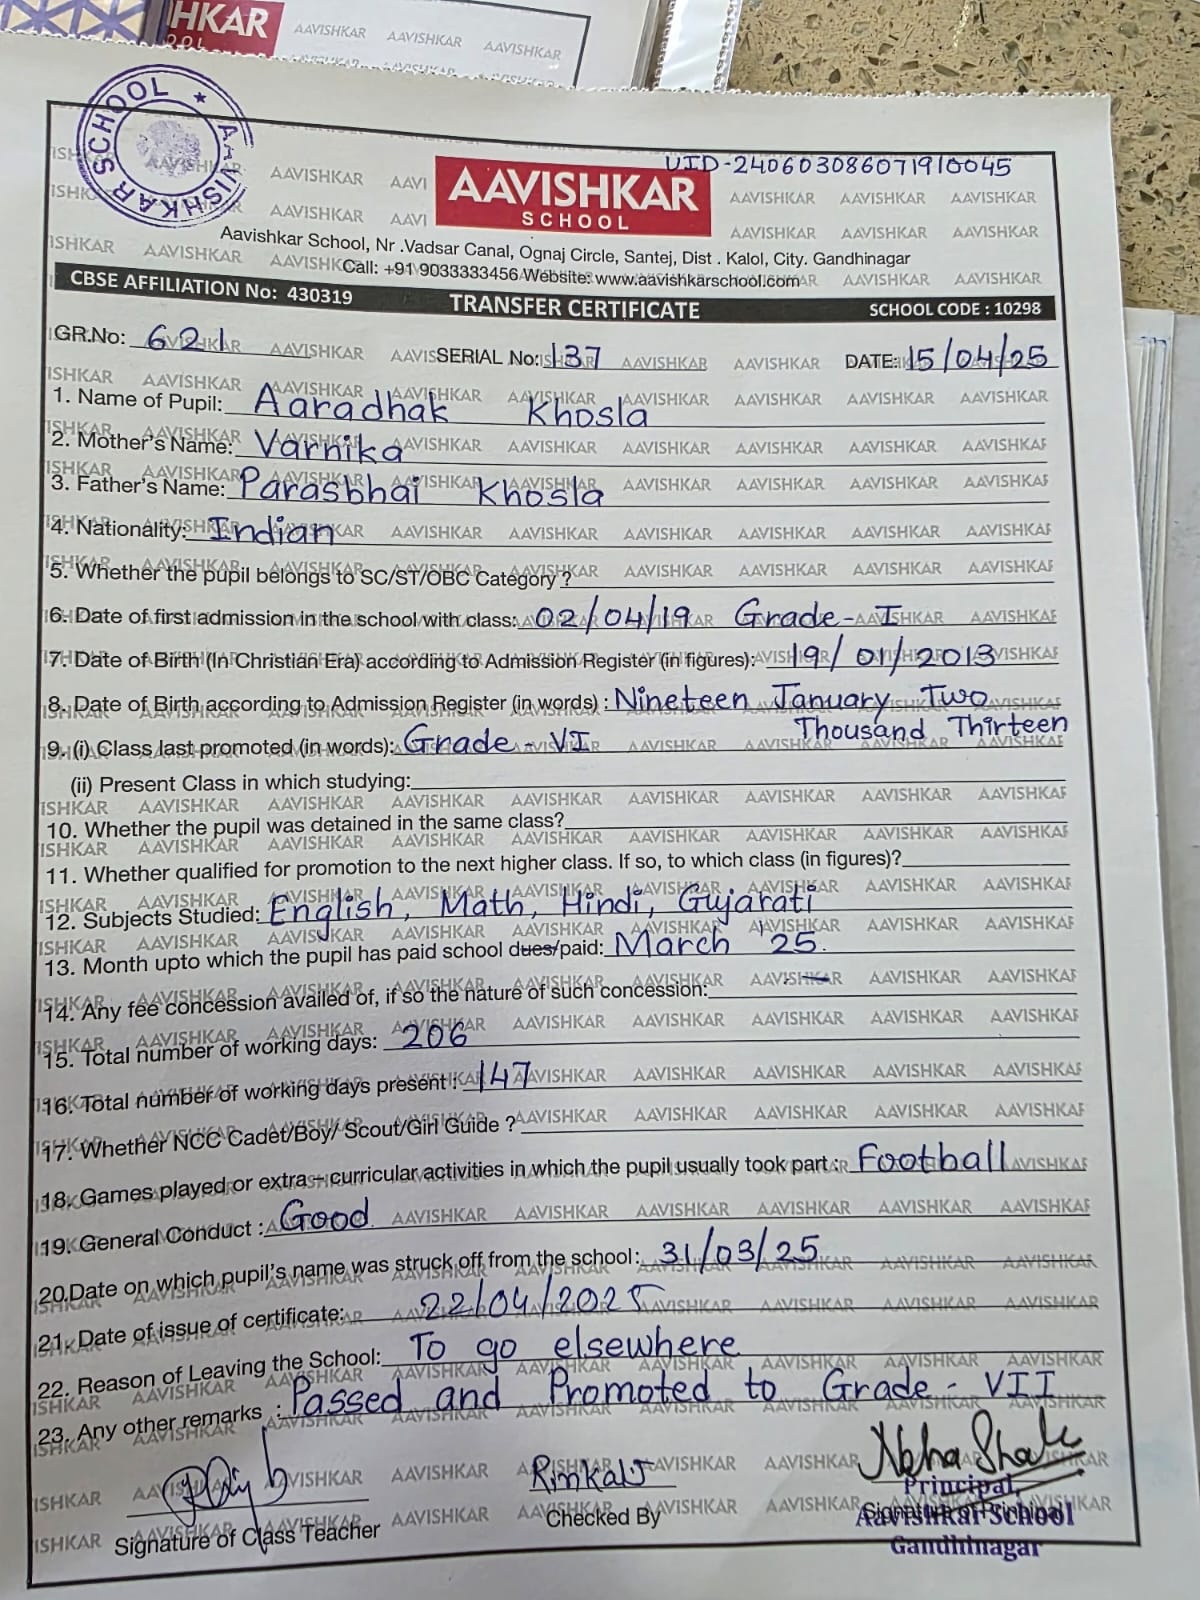 HKAR
AAVISHKAR AAVISHKAR AAVISHKAR
AAVISHKAR SCHOOL ★
UID-240603086071910045
AAVISHKAR
SCHOOL
Aavishkar School, Nr .Vadsar Canal, Ognaj Circle, Santej, Dist . Kalol, City. Gandhinagar
Call: +91 9033333456 Website: www.aavishkarschool.com
CBSE AFFILIATION No: 430319 TRANSFER CERTIFICATE SCHOOL CODE : 10298
GR.No: 621 SERIAL No: 137 DATE: 15/04/25
1. Name of Pupil: Aaradhak Khosla
2. Mother's Name: Varnika
3. Father's Name: Parasbhai Khosla
4. Nationality: Indian
5. Whether the pupil belongs to SC/ST/OBC Category ?
6. Date of first admission in the school with class: 02/04/19 Grade-I
7. Date of Birth (In Christian Era) according to Admission Register (in figures): 19/01/2013
8. Date of Birth according to Admission Register (in words) : Nineteen January Two
Thousand Thirteen
9. (i) Class last promoted (in words): Grade-VI
(ii) Present Class in which studying:
10. Whether the pupil was detained in the same class?
11. Whether qualified for promotion to the next higher class. If so, to which class (in figures)?
12. Subjects Studied: English, Math, Hindi, Gujarati
13. Month upto which the pupil has paid school dues/paid: March '25.
14. Any fee concession availed of, if so the nature of such concession:
15. Total number of working days: 206
16. Total number of working days present : 147
17. Whether NCC Cadet/Boy/ Scout/Girl Guide ?
18. Games played or extra – curricular activities in which the pupil usually took part : Football
19. General Conduct : Good
20.Date on which pupil's name was struck off from the school: 31/03/25
21. Date of issue of certificate: 22/04/2025
22. Reason of Leaving the School: To go elsewhere
23. Any other remarks : Passed and Promoted to Grade - VII
Rinkal
Principal,
Signature of Class Teacher Checked By Signature of Principal
Aavishkar School
Gandhinagar